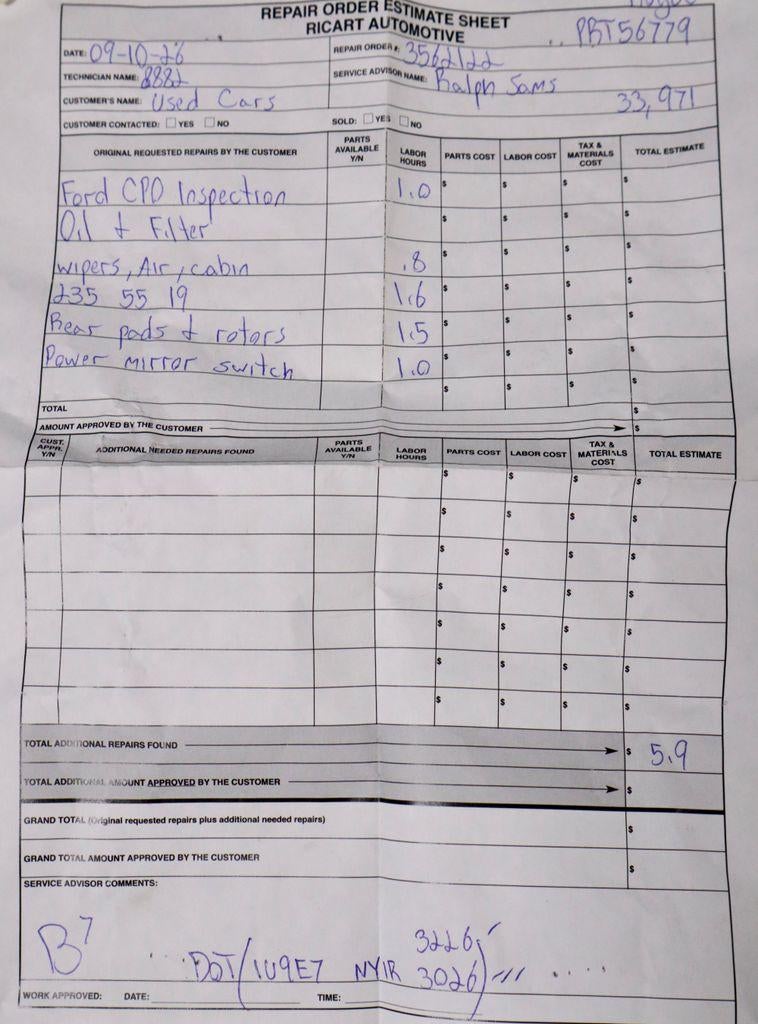 REPAIR ORDER ESTIMATE SHEET
RICART AUTOMOTIVE
PBT56779
DATE: 09-10-26
REPAIR ORDER #: 3562122
TECHNICIAN NAME: 8882
SERVICE ADVISOR NAME: Ralph Sams
CUSTOMER'S NAME: Used Cars
33,971
CUSTOMER CONTACTED: ☐ YES ☐ NO
SOLD: ☐ YES ☐ NO
ORIGINAL REQUESTED REPAIRS BY THE CUSTOMER PARTS AVAILABLE Y/N LABOR HOURS PARTS COST LABOR COST TAX & MATERIALS COST TOTAL ESTIMATE
Ford CPO Inspection 1.0 $ $ $ $
Oil & Filter $ $ $ $
wipers, Air, cabin .8 $ $ $ $
235 55 19 1.6 $ $ $ $
Rear pads & rotors 1.5 $ $ $ $
Power mirror switch 1.0 $ $ $ $
$ $ $ $
TOTAL $
AMOUNT APPROVED BY THE CUSTOMER $
CUST. APPR. Y/N ADDITIONAL NEEDED REPAIRS FOUND PARTS AVAILABLE Y/N LABOR HOURS PARTS COST LABOR COST TAX & MATERIALS COST TOTAL ESTIMATE
$ $ $ $
$ $ $ $
$ $ $ $
$ $ $ $
$ $ $ $
$ $ $ $
$ $ $ $
TOTAL ADDITIONAL REPAIRS FOUND $ 5.9
TOTAL ADDITIONAL AMOUNT APPROVED BY THE CUSTOMER $
GRAND TOTAL (Original requested repairs plus additional needed repairs) $
GRAND TOTAL AMOUNT APPROVED BY THE CUSTOMER $
SERVICE ADVISOR COMMENTS:
B7
3226
DOT/1U9E7 NY1R 3026
WORK APPROVED: DATE: TIME: